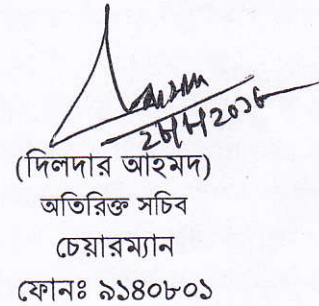 (দিলদার আহমদ)
অতিরিক্ত সচিব
চেয়ারম্যান
ফোনঃ ৯১৪০৮০১